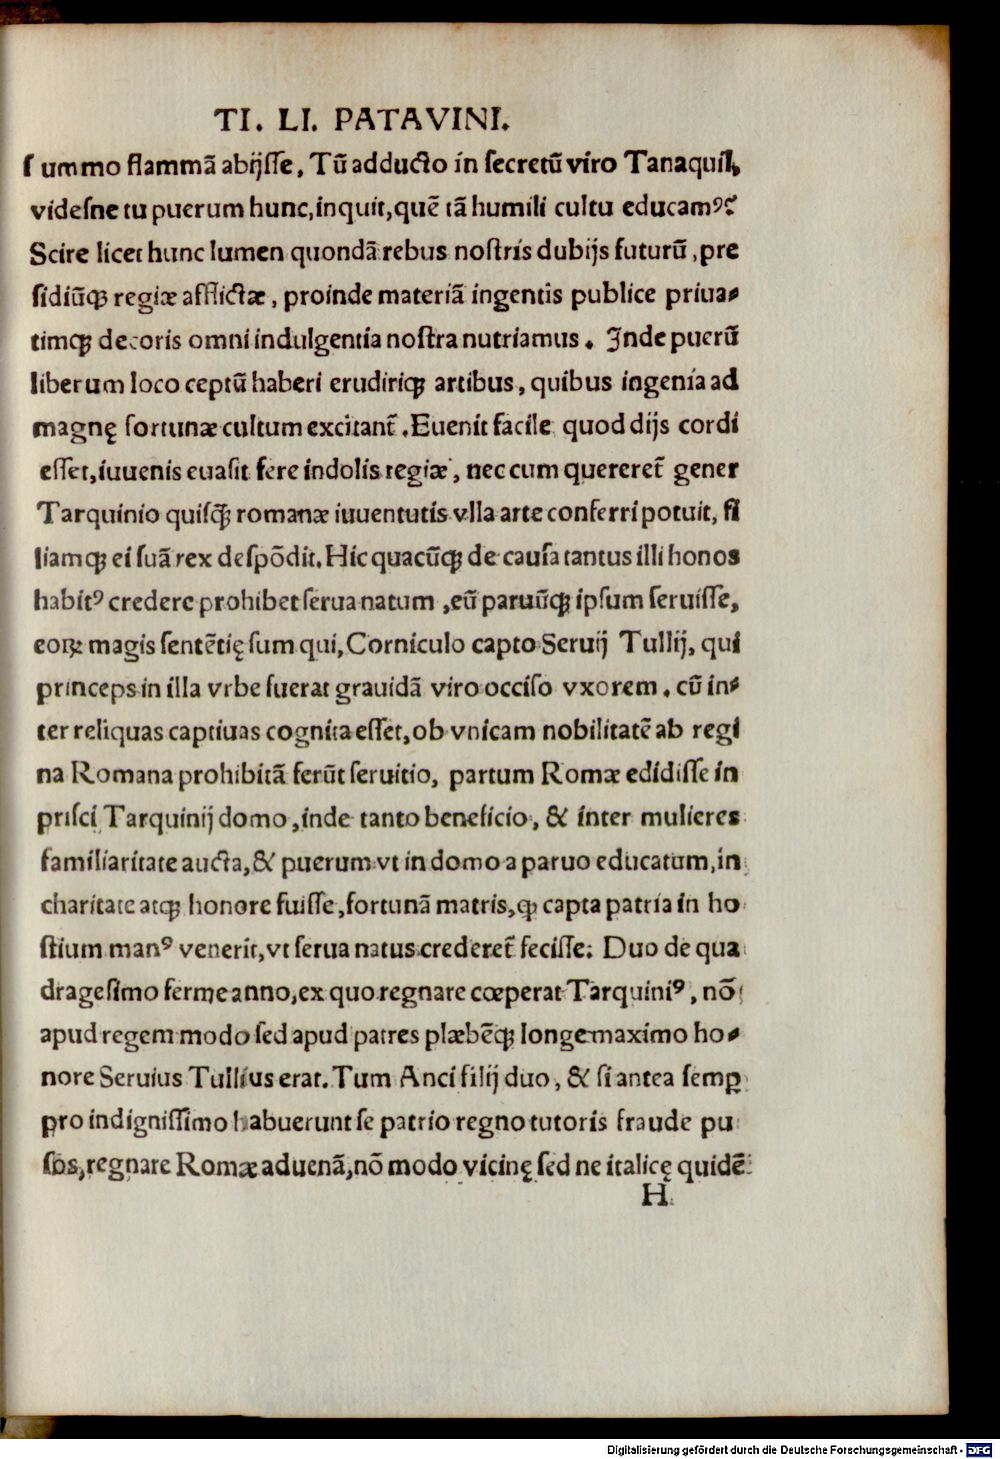 TI. LI. PATAVINI.
ſummo flammã abijſſe, Tũ adducto in ſecretũ viro Tanaquil,
videſne tu puerum hunc, inquit, quẽ tã humili cultu educamꝰ?
Scire licet hunc lumen quondã rebus noſtris dubijs futurũ, pre
ſidiũqꝫ regiæ afflictæ, proinde materiã ingentis publice priua⸗
timqꝫ decoris omni indulgentia noſtra nutriamus. Inde puerũ
liberum loco ceptũ haberi erudiriqꝫ artibus, quibus ingenia ad
magnę fortunæ cultum excitant̃. Euenit facile quod dijs cordi
eſſet, iuuenis euaſit fere indolis regiæ, nec cum quereret̃ gener
Tarquinio quiſqꝫ̃ romanæ iuuentutis vlla arte conferri potuit, fi
liamqꝫ ei ſuã rex deſpõdit. Hic quacũqꝫ de cauſa tantus illi honos
habitꝰ credere prohibet ſerua natum, eũ paruũqꝫ ipſum ſeruiſſe,
eoꝝ magis ſentẽtię ſum qui, Corniculo capto Seruij Tullij, qui
princeps in illa vrbe fuerat grauidã viro occiſo vxorem. cũ in⸗
ter reliquas captiuas cognita eſſet, ob vnicam nobilitatẽ ab regi
na Romana prohibitã ferũt ſeruitio, partum Romæ edidiſſe in
priſci Tarquinij domo, inde tanto beneficio, & inter mulieres
familiaritate aucta, & puerum vt in domo a paruo educatum, in
charitate atqꝫ honore fuiſſe, fortunã matris, ꝙ capta patria in ho
ſtium manꝰ venerit, vt ſerua natus crederet̃ feciſſe: Duo de qua
drageſimo ferme anno, ex quo regnare cœperat Tarquiniꝰ, nõ
apud regem modo ſed apud patres plæbẽqꝫ longe maximo ho⸗
nore Seruius Tullius erat. Tum Anci filij duo, & ſi antea ſemꝑ
pro indigniſſimo habuerunt ſe patrio regno tutoris fraude pu
ſos, regnare Romæ aduenã, nõ modo vicinę ſed ne italicę quidẽ
H
Digitalisierung gefördert durch die Deutsche Forschungsgemeinschaft - DFG